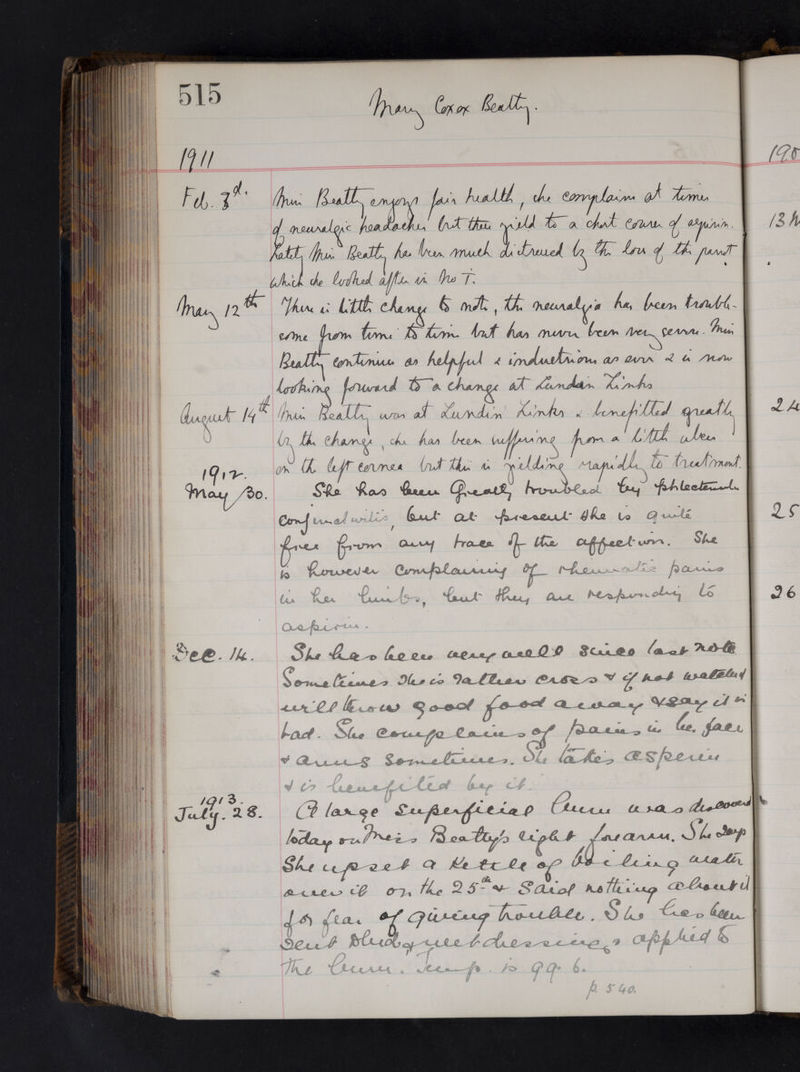 515
Mary Coxox Beatty.
1911
190
Feb. 3d. Miss Beatty enjoys fair health, she complains at times
of neuralgic headaches but these yield to a short course of aspirin.
13
Lately Miss Beatty has been much distressed by the loss of the parrot
which she looked after in No 7.
May 12th There is little change to note, the neuralgia has been trouble-
some from time to time but has never been very severe. Miss
Beatty continues as helpful & industrious as ever & is now
looking forward to a change at Lundin Links
August 14th Miss Beatty was at Lundin Links & benefitted greatly
24
by the change, she has been suffering from a little ulcer
on the left cornea but this is yielding rapidly to treatment.
1912.
May 30. She has been Greatly troubled by phlectenular
conjunctivitis, but at present she is quite
25
free from any trace of the affection. She
is however complaining of rheumatic pains
in her limbs, but they are responding to
26
aspirin.
Dec. 14. She has been very well since last note
Sometimes she is rather cross & if not watched
will throw good food away & say it is
bad. She complains of pains in her face
& arms sometimes. She takes asperin
& is benefited by it.
1913.
July. 28. A large superficial burn was discovered
today on Miss Beatty's right forearm. She says
She upset a kettle of boiling water
over it on the 25th & said nothing about it
for fear of giving trouble. She has been
sent to bed & wet dressings applied to
The burn. Temp. is 99.6.
p. 540.